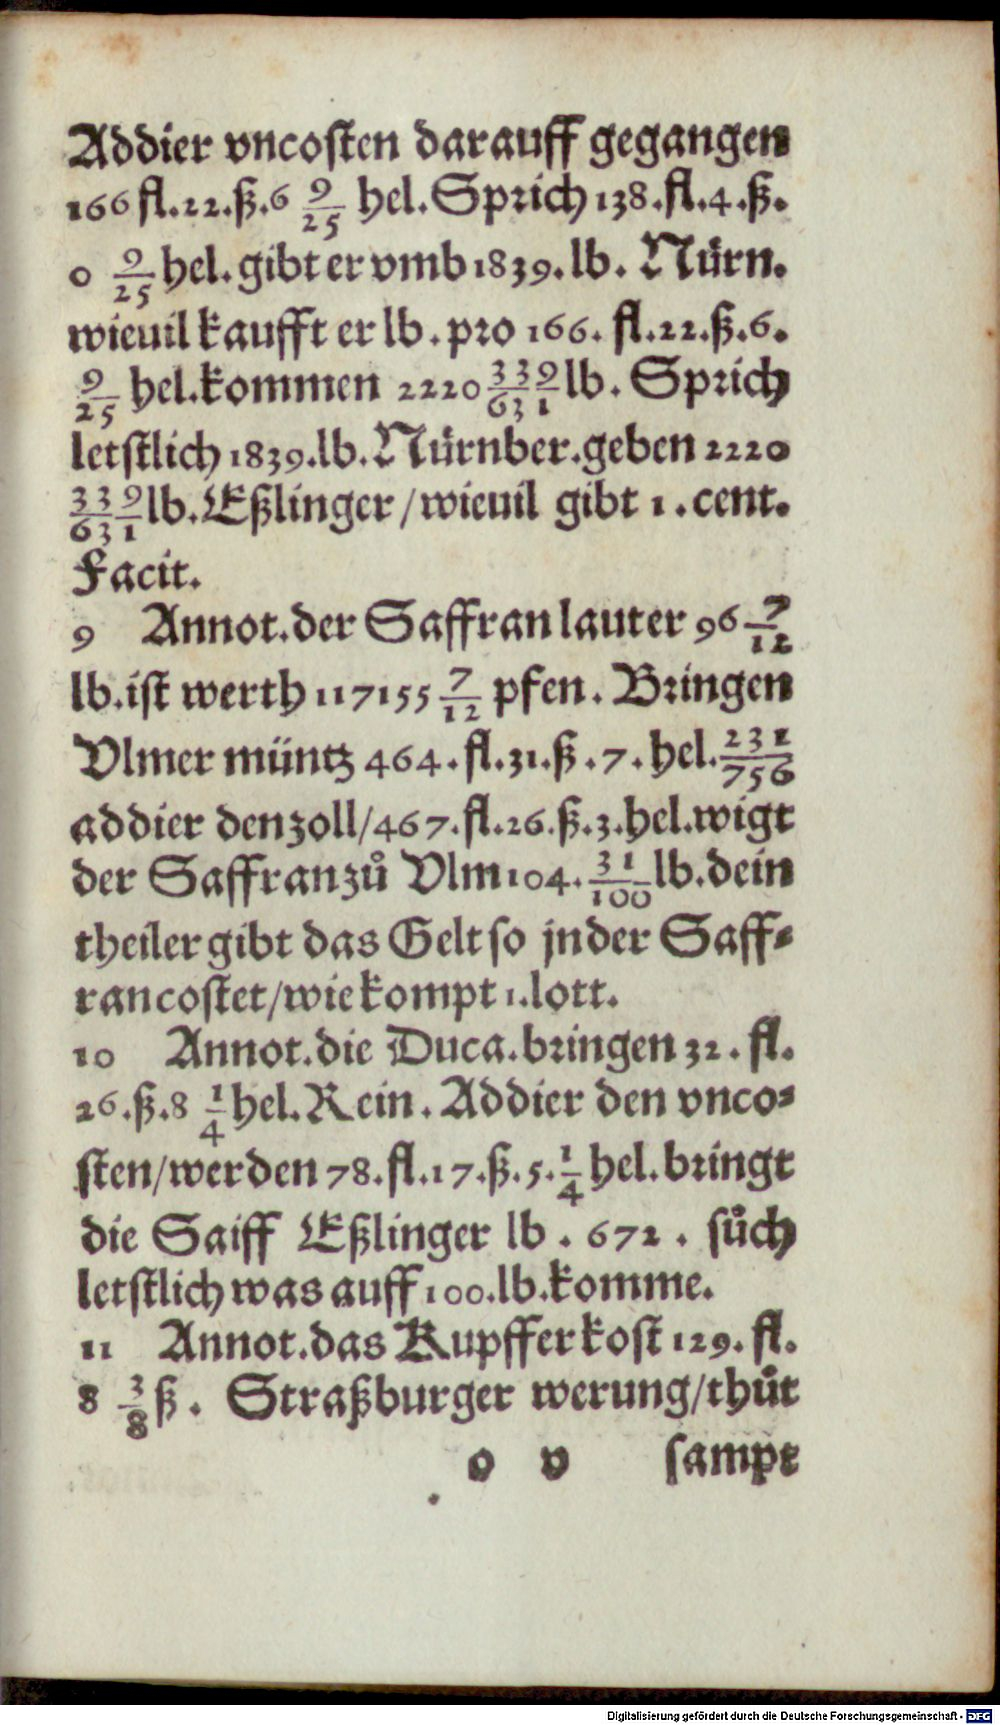 Addier vncosten darauff gegangen
166 fl. 22. ß. 6 9/25 hel. Sprich 138. fl. 4. ß.
0 9/25 hel. gibt er vmb 1839. lb. Nürn.
wieuil kaufft er lb. pro 166. fl. 22. ß. 6.
9/25 hel. kommen 2220 339/631 lb. Sprich
letstlich 1839. lb. Nürnber. geben 2220
339/631 lb. Eßlinger / wieuil gibt 1. cent.
Facit.
9 Annot. der Saffran lauter 96 7/12
lb. ist werth 117155 7/12 pfen. Bringen
Vlmer müntz 464. fl. 31. ß. 7. hel. 231/756
addier den zoll / 467. fl. 26. ß. 3. hel. wigt
der Saffran zů Vlm 104. 31/100 lb. dein
theiler gibt das Gelt so jn der Saff-
ran costet / wie kompt 1. lott.
10 Annot. die Duca. bringen 32. fl.
26. ß. 8 1/4 hel. Rein. Addier den vnco-
sten / werden 78. fl. 17. ß. 5. 1/4 hel. bringt
die Saiff Eßlinger lb. 672. sůch
letstlich was auff 100. lb. komme.
11 Annot. das Kupffer kost 129. fl.
8 3/8 ß. Straßburger werung / thůt
o v sampt
Digitalisierung gefördert durch die Deutsche Forschungsgemeinschaft - DFG